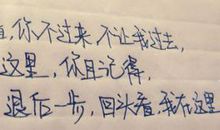 你不过来,不让我过去,
这里,你且记得,
退后一步,回头看,我在这里